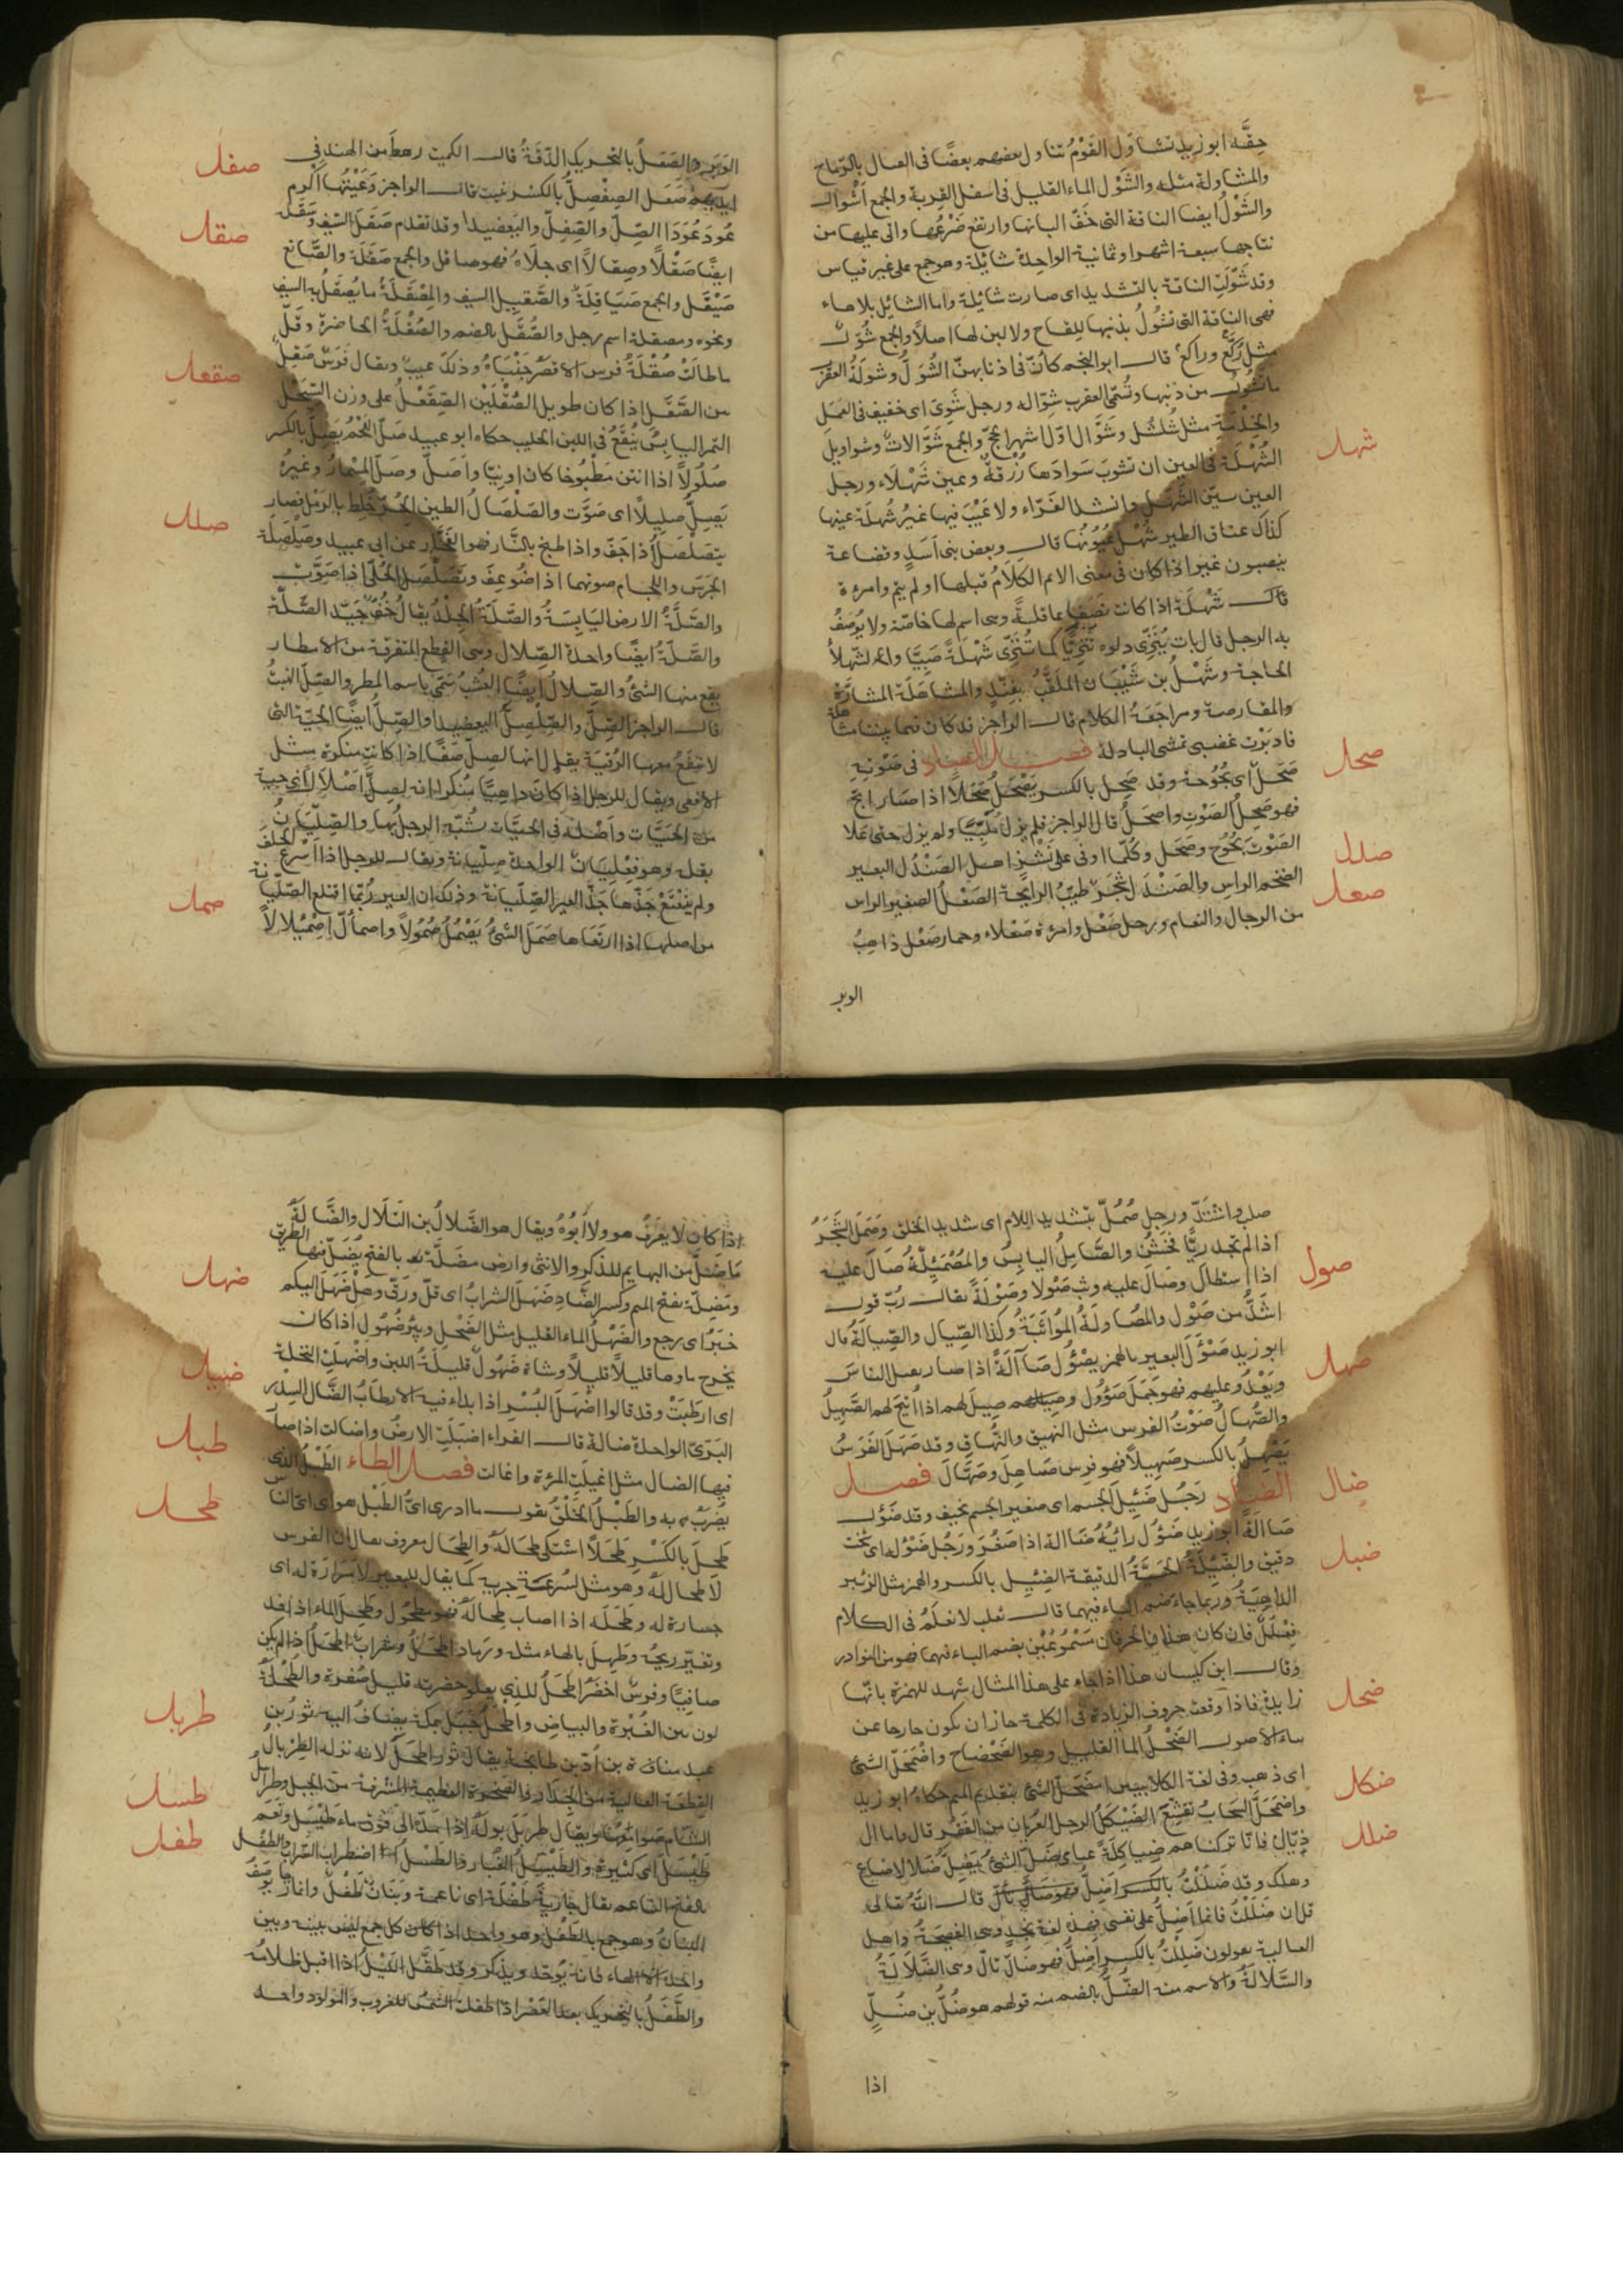 حِقَّه ابو زيد تشاول القَوْمُ تناول بعضهم بعضًا فى القتال بالرماح
والمشاولة مثله والشَّوْل الماء القليل فى اسفل القربة والجمع اَشْوال
والشَّوْلُ ايضا الناقة التى خَفَّ البانها وارتفع ضَرْعُها واتى عليها من
نتاجها سبعة اشهر او ثمانية الواحدة شائلة وهو جمع على غير قياس
وقد شَوَّلَتِ الناقة بالتشديد اى صارت شائلة واما الشائل بلا هاء
فهى الناقة التى تشُولُ بذنبها للِقاح ولا لبن لها اصلاً والجمع شُوَّل
مثل رُكَّع وراكع قال ابو النجم كاَنّ فى اذنابهنّ الشُوَّلِ وشَولَةُ العقرب
ما تشُولُ من ذنبها وتُسمّى العقرب شَوّاله ورجل شَوِل اى خفيف فى العَمَلِ
والخِدْمَةِ مثل شُلْشُل وشَوّال اوّل اشهر الحجّ والجمع شَوّالاتٌ وشواويل
شهل
الشُهْلَة فى العين ان تشوبَ سَوادَها زُرْقةٌ وعين شَهْلَاء ورجل اَشْهَل
العين بيّن الشَّهَل وانشد الفرّاء ولا عَيْبَ فيها غيرُ شُهلة عينها
كذاك عتاق الطير شُهْل عُيُونُها قال وبعض بنى اَسَدٍ وقضاعة
ينصبون غير اذا كان فى معنى الا تم الكلامُ قبلها او لم يتم وامرءة
شَهْلَة اذا كانت نَصَفا عاقلةً وهى اسم لها خاصّة ولا يُوصَفُ
به الرجل قال بات يُنَزّى دلوه تَنْزِيًّا كما تُنَزّى شَهْلَةٌ صَبِيًّا والشهلاءُ
الحاجة وشَهْلُ بن شَيْبَان المُلَقَّبُ بفِنْدٍ والمشاهَلَة المشارَّة
والمقارصة ومراجعَةُ الكلام قال الراجز قد كان فيما بيننا مشاهلة
فادبَرَت غضبى تمشّى البادلة فصل الصاد فى صَوْتِهِ
صحل
صَحَلٌ اى بُحُوحة وقد صَحِل بالكسر يَصْحَلُ صَحَلاً اذا صار ابحّ
فهو صَحِلُ الصَوْتِ واصحَلُ قال الراجز فلم يزل مُلَبِّيًا ولم يزل حتى علا
الصَوْتَ بُحُوح وصَحَل وكُلّما اوفى على نَشْزٍ اهلّ الصَنْدُل البعير
صندل
الضخم الراس والصَنْدَل شجَرٌ طيّبُ الرايحة الصَعْلُ الصغير الراس
صعل
من الرجال والنعام ورجل صَعْل وامرءة صَعْلاء وحمار صَعْل ذاهِبُ
الوبر
الوَبَرِ والصَعَلُ بالتحريك الدِّقَةُ قال الكميت رهط من الهند فى
ايديهم صَعَل الصِفْصِلُّ بالكسر نبت قال الراجز رَعَيْتُها اكرم
صفل
عُودَ عُودَا الصِلّ والصِفْصِلّ واليَعْضِيدا وقد تقدم صَقَلَ السَيفَ وسَقَلَهُ
صقل
ايضًا صَقْلاً وصِقالاً اى جلاهُ فهو صاقل والجمع صَقَلَة والصَّانع
صَيْقَل والجمع صَيَاقِلَة والصَّقِيل السيف والمِصْقَلَةُ ما يُصقَلُ به السيف
ونحوه ومصقلة اسم رجل والصُقَلُ بالضم والصُقْلَةُ الخاصرة وقلّ
ما طالَتْ صُقْلَةُ فرس الا قصُر جَنْبَاهُ وذلك عيبٌ ويقال فَرَسٌ صَقِل
صقعل
من الصَّقَل اذا كان طويل الصُقْلَيْن الصِّقَعْلُ على وزن السِّبَحْل
التمر اليابس يُنْقَعُ فى اللبن الحليب حكاه ابو عبيد صَلَّ اللحمُ يصِلُّ بالكسر
صلل
صُلُولاً اذا انتن مَطْبُوخا كان او نِيّا واَصَلّ وصَلّ المسمارُ وغيرُه
يَصِلُّ صليلًا اى صَوَّت والصَلْصَالُ الطين الحُرّ خُلِط بالرَمْل فصار
يتصَلْصَلُ اذا جَفّ واذا طبخ بالنَّار فهو الفَخَّار عن ابى عبيد وصَلْصَلة
الجرَس واللجام صوتهما اذا ضُوعِفَ وتصَلْصَل الحُلىّ اذا صَوَّتَ
والصَّلَّةُ الارض اليَابِسَةُ والصَّلَة الجِلْدُ يقال خُفٌّ جَيّد الصَّلّة
والصَّلّةُ ايضًا واحدة الصِّلال وهى القِطع المتفرّقة من الامطار
يقع منها الشئُ والصِّلالُ ايضًا العُشْبُ سُمّى باسم المطر والصِّلّ النبتُ
قال الراجز الصِلَّ والصِفْصِلَّ اليعضيدا والصِّلُّ ايضًا الحيّة التى
لا تنفَعُ معها الرُقْيَة يقال انها لصلّ صَفًا اذا كانت منكرة مثل
الافعى ويقال للرجل اذا كان داهِيًا مُنكَرًا انه لصِلُّ اَصْلالٍ اى حية
من الحَيَّاتِ واَصْلُه فى الحيّاتِ شُبّهَ الرجلُ بها والصِّلّيَانُ
بقلة وهو فِعْلِيَان الواحدة صِلّيانة ويقال للرجل اذا اَسْرَعَ الحَلِفَ
ولم يتَتَعْتَعْ جَذّها جَذَّ العير الصِّلّيانة وذلك ان العير ربّما اقتلع الصِّلّيانة
صمل
من اصلها اذا ارتَعَاها صَمَلَ الشئُ يَصْمُلُ صُمُولاً واصمأَلَّ اِصْمِئلالاً
صلب واشتدّ ورجل صُمُلّ بتشديد اللام اى شديد الخلق وصَمَلَ الشَّجَرُ
اذا لم تجد ريًّا فخَشُن والصَّامِلُ اليابِسُ والمُصْمَئِلَّةُ صَالَ عليه
صول
اذا استطال وصَالَ عليه وثب صَوْلا وصَوْلَةً يقال رُبّ قولٍ
اشدُّ من صَوْلٍ والمُصاولَةُ المُوَاثبَةُ وكذا الصِّيال والصِّيالَةُ قال
ابو زيد صَؤُلَ البعير بالهمز يصْؤُل صَآلَةً اذا صار يقتل الناسَ
ويَعْدُو عليهم فهو جَمَل صَؤُول وصِيلَ لهم اذا اُتيحَ لهم الصَّهِيلُ
صهل
والصُّهَالُ صَوْتُ الفرس مثل النهيق والنُّهاق وقد صَهَلَ الفَرَسُ
يَصْهِلُ بالكسر صَهِيلاً فهو فرس صَاهِل وصَهَّالٌ فصل
الضاد رَجُل ضَئِيل الجسم اى صغير الجسم نحيف وقد ضَؤُل
ضأل
ضَاالَةً ابو زيد ضَؤُلَ رايُهُ ضَاالة اذا صَغُرَ ورَجُل ضَؤُلَه اى نحيف
دقيق والضَّئِيلَة الحَيَّةُ الدقيقة الضِئْبِل بالكسر والهمز مثل الزئبر
ضئبل
الداهِيَةُ وربما جاء ضم الباء فيهما قال ثعلب لا نعلَمُ فى الكلام
فِعْلُلٌ فان كان هذان الحرفان مَسْمُوعَيْن بضم الباء فيهما فهو من النوادر
وقال ابن كيسان هذا اذا جاء على هذا المثال شهد للهمزة بانّها
زايدة فاذا وقعت حروف الزيادة فى الكلمة جاز ان تكون خارجا عن
ضحل
بناء الاصول الضَحْلُ الماء القليل وهو الضَحْضاح واضْمَحَلّ الشئ
اى ذهب وفى لغة الكلابيين امضَحَلَّ الشئ بتقديم الميم حكاهُ ابو زيد
ضكل
واضمَحَلَّ السحابُ تقشَّعَ الضَيْكَلُ الرجل العُريان من الفَقْر قال واما ال
ضلل
ذيّال فانّا تركناهم ضَياكلةً عيامى ضَلّ الشئُ يَضِلّ ضَلالا ضاع
وهلك وقد ضَلَلْتُ بالكسر اَضِلُّ قال اللهُ تعالى
قل ان ضَلَلْتُ فانما اَضِلُّ على نفسى فهذه لغة نجدٍ وهى الفصيحَةُ واهل
العالية يقولون ضَلِلْتُ بالكسر اَضِلُّ فهو ضَالّ تالّ وهى الضَّلالَةُ
والتَّلالَةُ والاسم منه الضُّلُّ بالضم منه قولهم هو ضُلُّ بن ضُلٍّ
اذا
اذا كان لا يعرَفُ هو ولا اَبُوهُ ويقال هو الضَّلالُ بن التَلال والضَّالَةُ
ما ضلّ من البهايم للذكر والانثى وارض مضَلَّة بالفتح يُضَلّ فيها الطريق
ضهل
ومَضِلّة بفتح الميم وكسر الضَّاد ضَهَلَ الشرابُ اى قلّ ورَقّ وهل ضَهَلَ اليكم
خبَرٌ اى رجع والضَهْلُ الماء القليل مثل الضَحْل وبئر ضَهُول اذا كان
يخرج ماوها قليلاً قليلاً وشاة ضَهُولٌ قليلَةُ اللبن واضهلَتِ النخلة
ضيل
اى ارطَبَتْ وقد قالوا اضْهَلَ البُسْر اذا بداء فيه الارطابُ الضَّالُ السِدْر
البَرّىّ الواحدة ضالة قال الفراء اضيَلَتِ الارضُ واضالت اذا صار
طبل
فيها الضال مثل اغيلَتِ المرءة واغالت فصل الطاء الطَبْلُ الذى
يُضرَبُ به والطَبْلُ الخَلْقُ يقول ما ادرى اىُّ الطَبْل هو اى اىّ الناس
طحل
طَحِلَ بالكَسْرِ طَحَلاً اشتكى طحالَهُ والطِحَال معروف يقال ان الفرس
لا طحال له وهو مثل لسُرعَة جريه كما يقال للبعير لا مَرارَة له اى
جسارة له وطحَلَه اذا اصاب طِحالَهُ فهو مَطحُول وطَحِلَ الماء اذا فسد
وتغيّر ريحُهُ ورَماد اطحَلُ وشراب اطحَلُ اذا لم يكن
صافيًا وفرس اخضَرُ اطحَلُ للذى يعلو خضرته قليل صُفرة والطُحْلَةُ
لون بين الغُبْرة والبياض واطحَلُ جَبَل بمكة يضاف اليه ثور بن
عبد مناة بن اُدّ بن طابخة يقال ثور اطحَل لانه نزله الطِربالُ
طربل
القطعَة العالية من الجِدَار والصخرة العظيمة المشرفة من الجبل وطرابيل
الشام صوامعها ويقال طربَلَ بولَهُ اذا مدّهُ الى فوق ماء طَيْسَل ونَعَم
طسل
طَيْسَل اى كثيرة والطَيْسَلُ الغُبار والطَسْلُ اضطراب السَّراب الطَفْل
طفل
بالفتح الناعم يقال جارية طَفْلَة اى ناعمة وبَنَان طَفْلٌ وانما جاز يوصَفُ
البنانُ وهو جمع بالطَفْل وهو واحد اذا كان كل جمع ليس بينه وبين
واحده الا الهاء فانه يُوحّد ويذكّر وقد طَفَّلَ اللَيْلُ اذا اقبل ظلامُهُ
والطَفَلُ بالتحريك بعد العَصْر اذا طفلت الشمسُ للغروب والمولود واحد